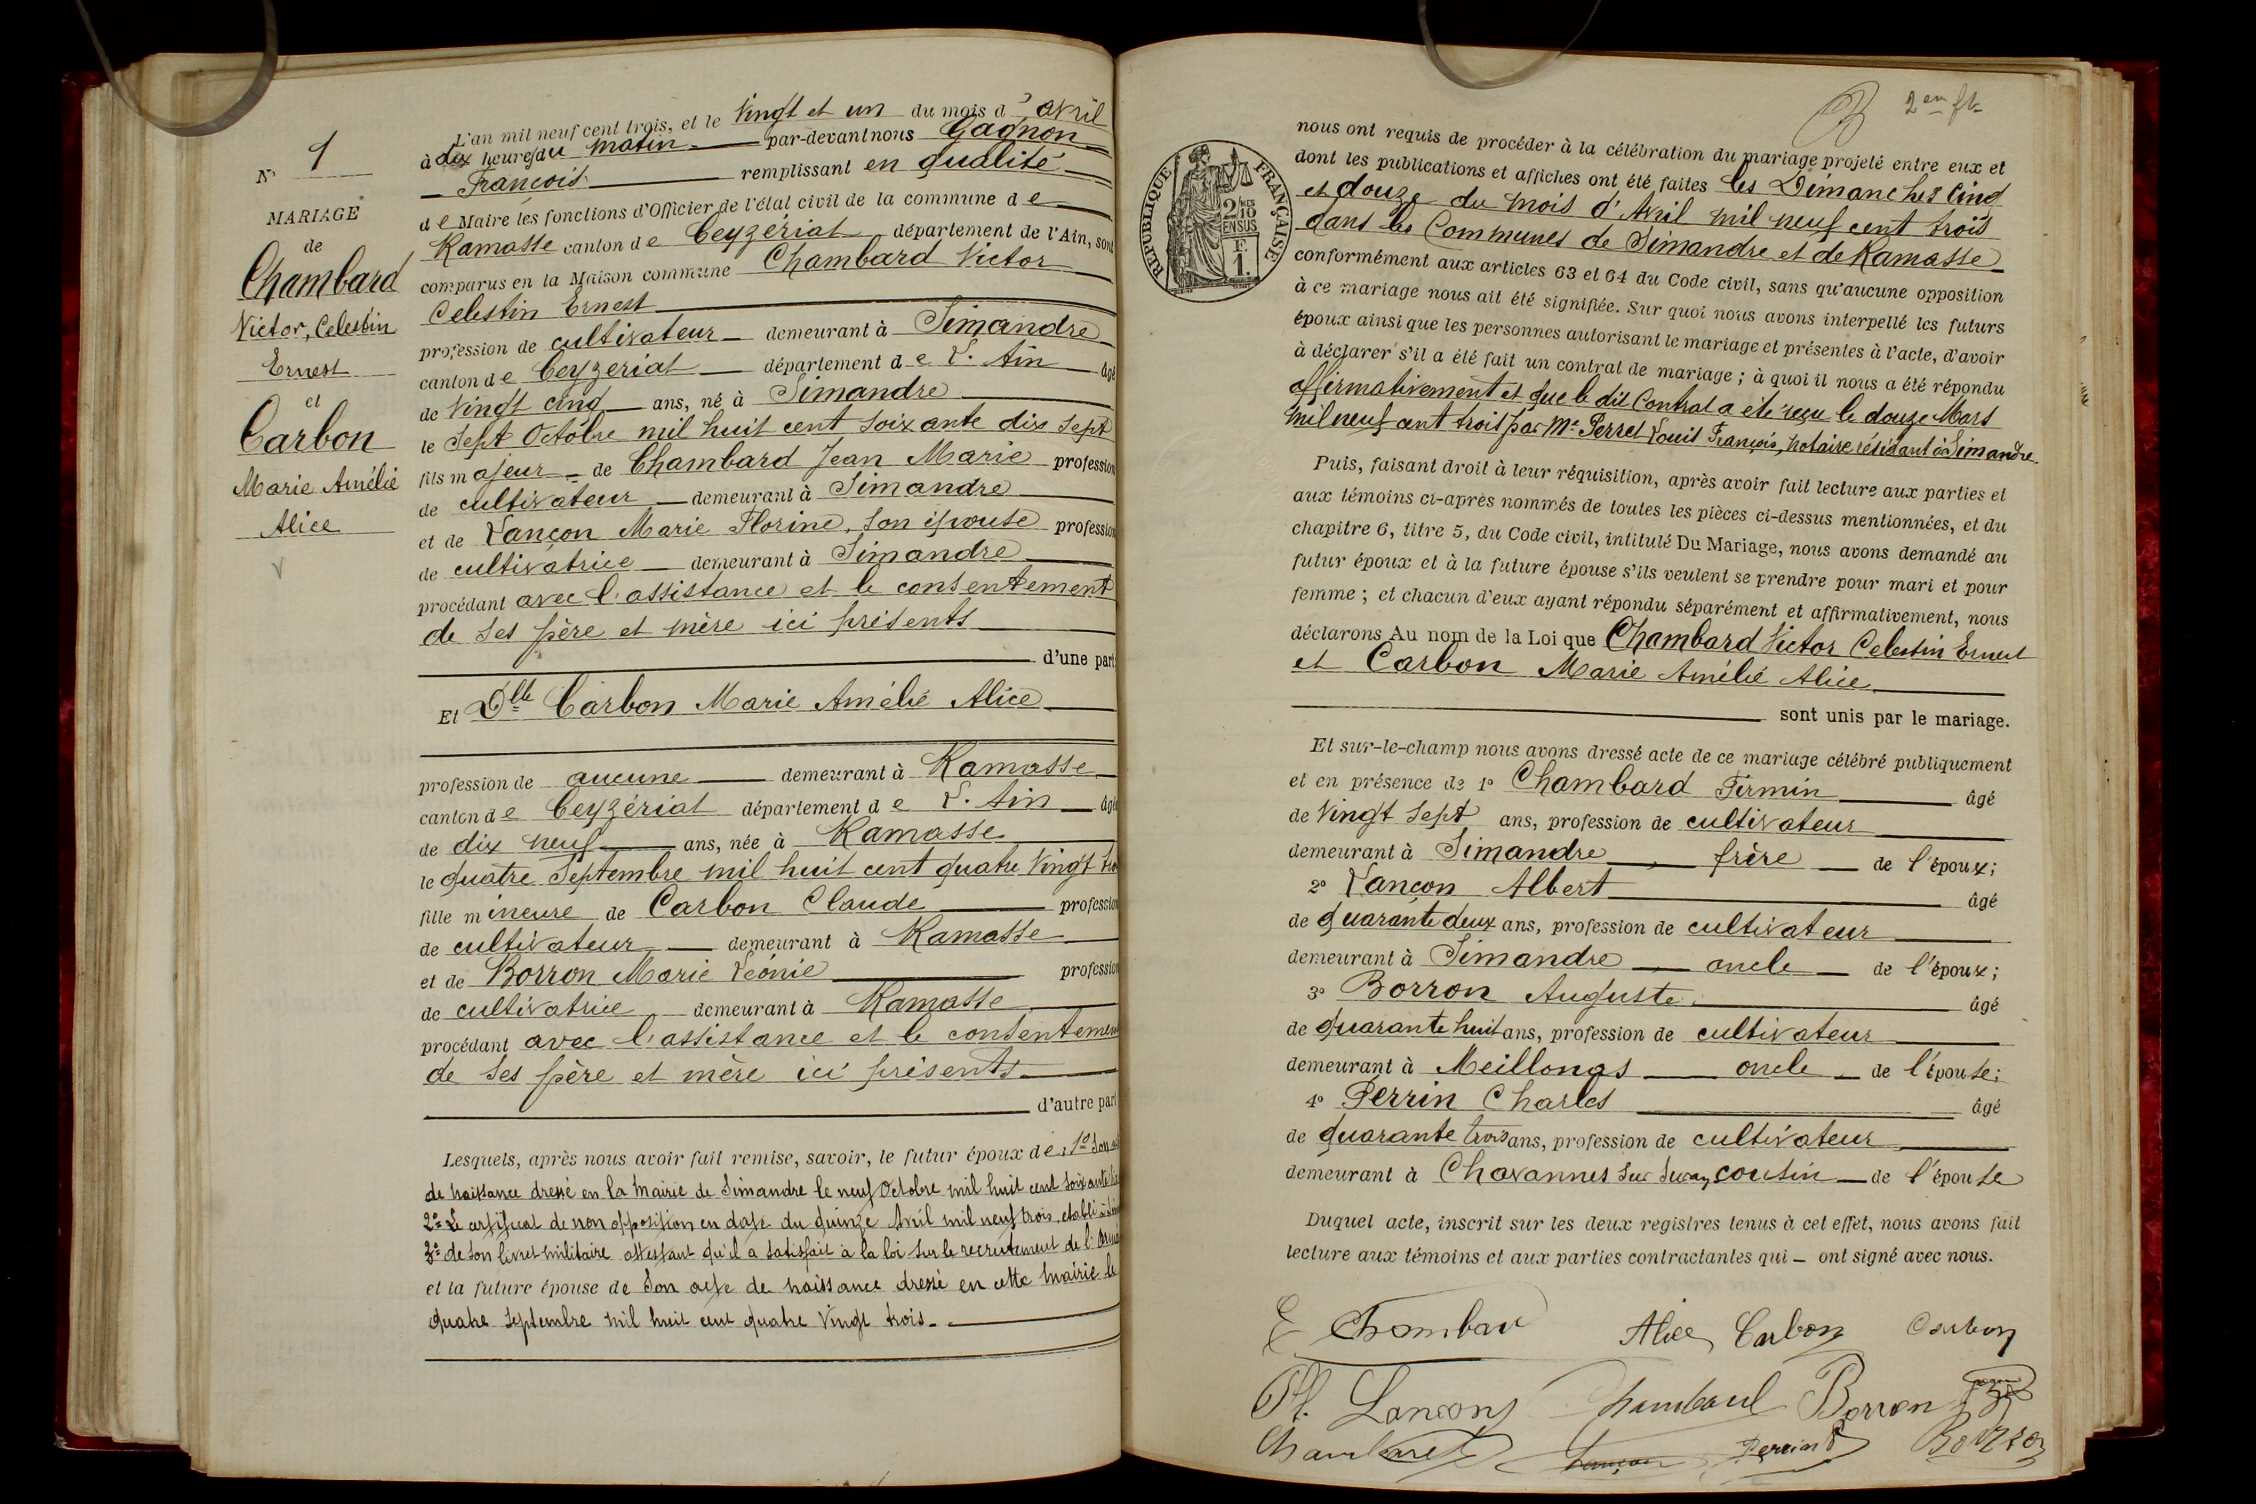 N° 1
MARIAGE
de
Chambard
Victor, Celestin
Ernest
et
Carbon
Marie Amélie
Alice
L'an mil neuf cent trois, et le Vingt et un du mois d' avril
à dix heures du matin par-devant nous Gagnon
François remplissant en qualité
de Maire les fonctions d'Officier de l'état civil de la commune de
Ramasse canton de Ceyzériat département de l'Ain, sont
comparus en la Maison commune Chambard Victor
Celestin Ernest
profession de cultivateur demeurant à Simandre
canton de Ceyzeriat département de L'Ain âgé
de Vingt cinq ans, né à Simandre
le Sept Octobre mil huit cent soixante dix sept
fils majeur de Chambard Jean Marie profession
de cultivateur demeurant à Simandre
et de Lançon Marie Florine, son épouse profession
de cultivatrice demeurant à Simandre
procédant avec l'assistance et le consentement
de ses père et mère ici présents
d'une part
Et Dlle Carbon Marie Amélie Alice
profession de aucune demeurant à Ramasse
canton de Ceyzériat département de L'Ain âgé
de dix neuf ans, née à Ramasse
le quatre Septembre mil huit cent quatre Vingt
fille mineure de Carbon Claude profession
de cultivateur demeurant à Ramasse
et de Borron Marie Léonie profession
de cultivatrice demeurant à Ramasse
procédant avec l'assistance et le consentement
de ses père et mère ici présents
d'autre part
Lesquels, après nous avoir fait remise, savoir, le futur époux de, 1° Son
de naissance dressé en la Mairie de Simandre le neuf Octobre mil huit cent soixante
2° Le certificat de non opposition en date du quinze Avril mil neuf trois, établi à
3° de son livret militaire attestant qu'il a satisfait à la loi sur le recrutement de l'
et la future épouse de Son acte de naissance dressé en cette mairie le
quatre Septembre mil huit cent quatre Vingt trois.
2em ft
RÉPUBLIQUE FRANÇAISE
2/10 EN SUS
F.
1.
nous ont requis de procéder à la célébration du mariage projeté entre eux et
dont les publications et affiches ont été faites les Dimanches Cinq
et douze du mois d'Avril mil neuf cent trois
dans les Communes de Simandre et de Ramasse
conformément aux articles 63 et 64 du Code civil, sans qu'aucune opposition
à ce mariage nous ait été signifiée. Sur quoi nous avons interpellé les futurs
époux ainsi que les personnes autorisant le mariage et présentes à l'acte, d'avoir
à déclarer s'il a été fait un contrat de mariage ; à quoi il nous a été répondu
affirmativement et que le dit Contrat a été reçu le douze Mars
mil neuf cent trois par Me Perret Louis François, notaire résidant à Simandre.
Puis, faisant droit à leur réquisition, après avoir fait lecture aux parties et
aux témoins ci-après nommés de toutes les pièces ci-dessus mentionnées, et du
chapitre 6, titre 5, du Code civil, intitulé Du Mariage, nous avons demandé au
futur époux et à la future épouse s'ils veulent se prendre pour mari et pour
femme ; et chacun d'eux ayant répondu séparément et affirmativement, nous
déclarons Au nom de la Loi que Chambard Victor Celestin Ernest
et Carbon Marie Amélie Alice
sont unis par le mariage.
Et sur-le-champ nous avons dressé acte de ce mariage célébré publiquement
et en présence de 1° Chambard Firmin âgé
de Vingt sept ans, profession de cultivateur
demeurant à Simandre, frère de l'époux;
2° Lançon Albert âgé
de quarante deux ans, profession de cultivateur
demeurant à Simandre, oncle de l'époux;
3° Borron Auguste âgé
de quarante huit ans, profession de cultivateur
demeurant à Meillonas oncle de l'épouse;
4° Perrin Charles âgé
de quarante trois ans, profession de cultivateur
demeurant à Chavannes sur Suran, cousin de l'épouse
Duquel acte, inscrit sur les deux registres tenus à cet effet, nous avons fait
lecture aux témoins et aux parties contractantes qui ont signé avec nous.
E Chambard Alice Carbon Carbon
Lançon Chambard Borron
Chambard Lançon Perrin Borron